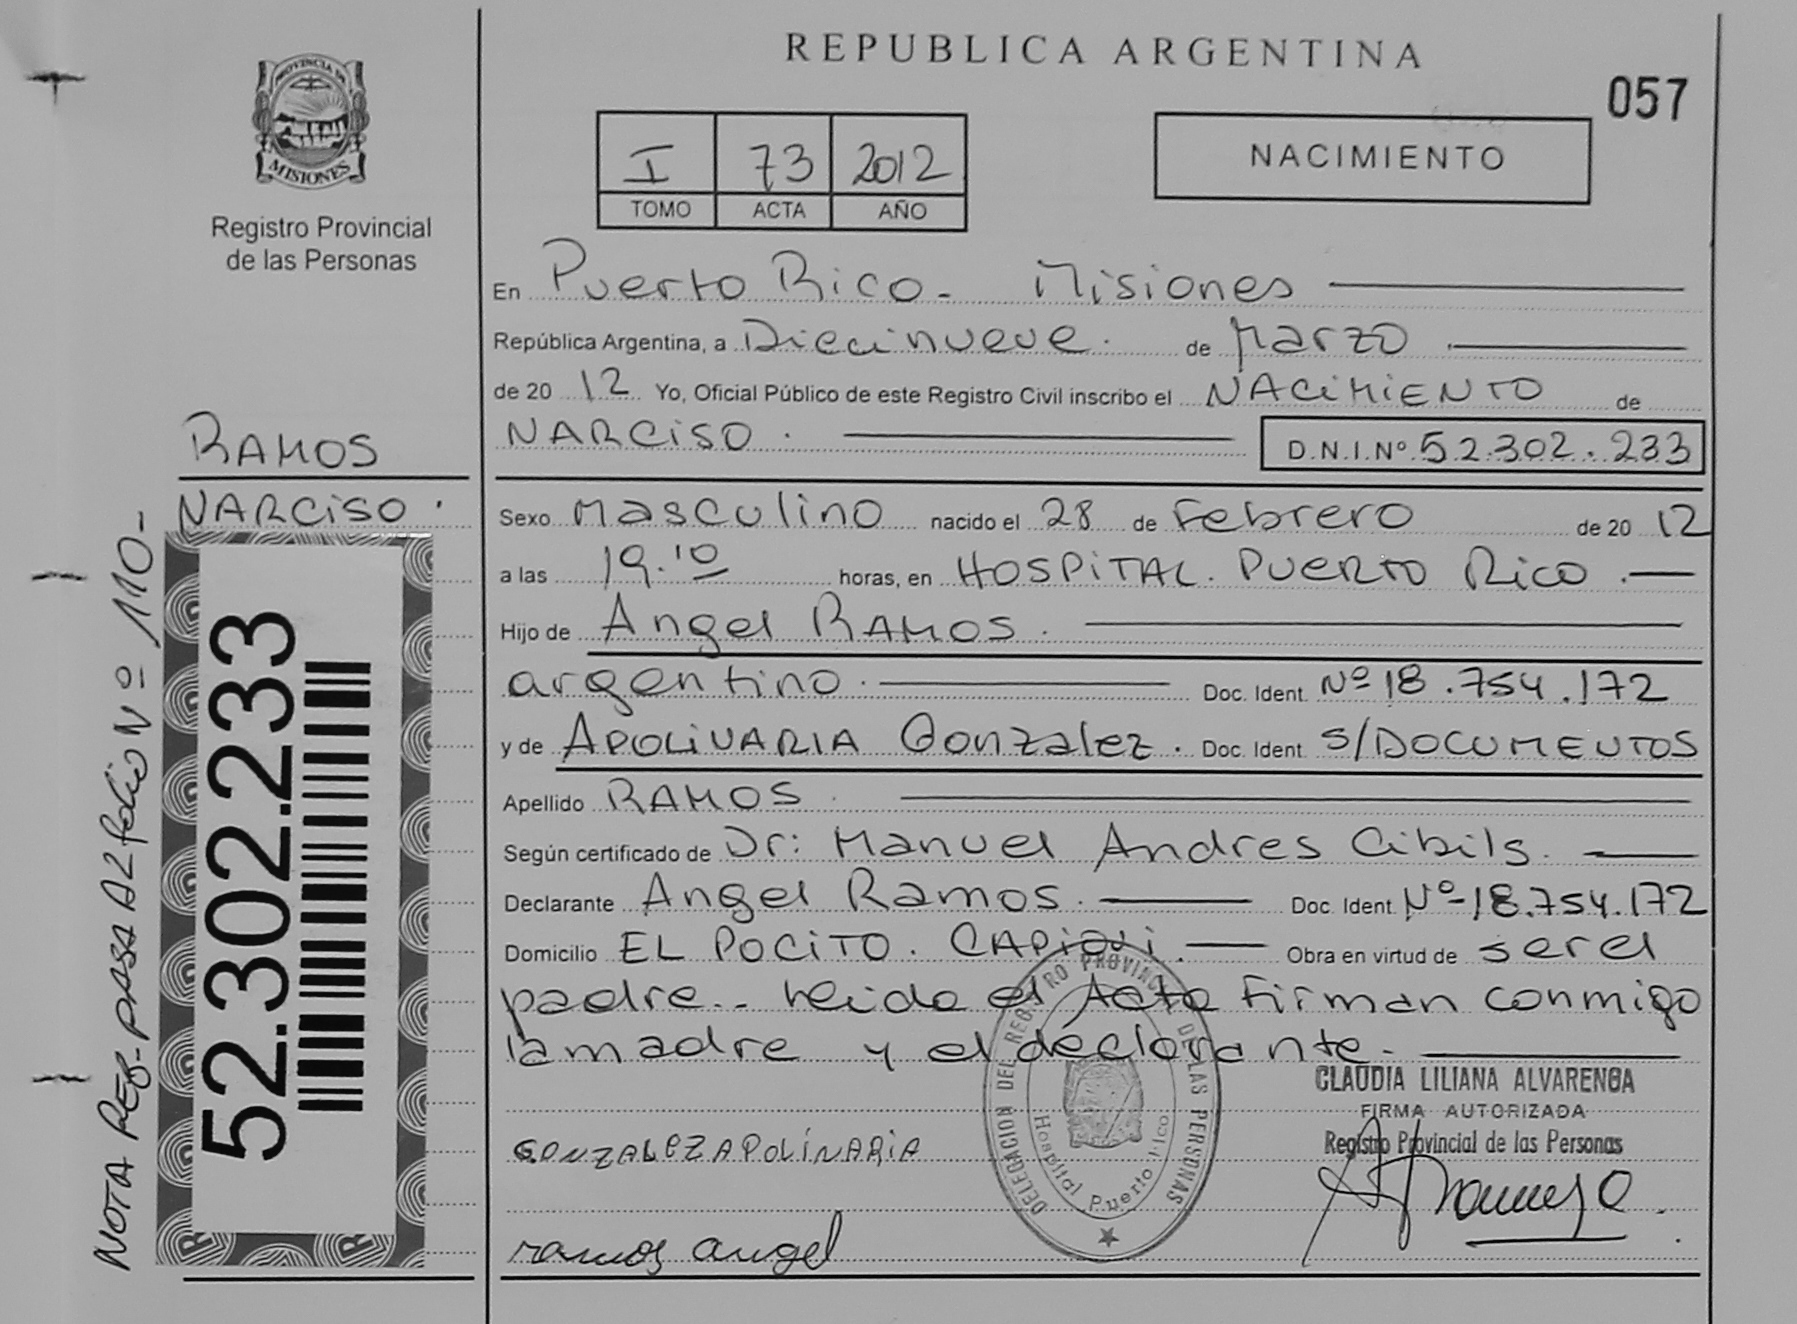 REPUBLICA ARGENTINA
057
PROVINCIA DE
MISIONES
Registro Provincial
de las Personas
I 73 2012
TOMO ACTA AÑO
NACIMIENTO
En Puerto Rico - Misiones
República Argentina, a Diecinueve. de Marzo
de 20 12 Yo, Oficial Público de este Registro Civil inscribo el NACIMIENTO de
NARCISO. D.N.I.Nº 52.302.233
RAMOS
NARCISO.
Sexo Masculino nacido el 28 de Febrero de 20 12
a las 19.10 horas, en HOSPITAL. PUERTO RICO.
Hijo de Angel RAMOS.
argentino. Doc. Ident. Nº 18.754.172
y de APOLINARIA Gonzalez. Doc. Ident. S/DOCUMENTOS
Apellido RAMOS.
Según certificado de Dr: Manuel Andres Cibils.
Declarante Angel Ramos. Doc. Ident. Nº-18.754.172
Domicilio EL POCITO. CAPIOVI. Obra en virtud de ser el
padre.. Leida el Acta Firman conmigo
la madre y el declarante.
CLAUDIA LILIANA ALVARENGA
FIRMA AUTORIZADA
Registro Provincial de las Personas
GONZALEZ APOLINARIA
ramos angel
DELEGACION DEL REGISTRO PROVINCIAL DE LAS PERSONAS
Hospital Puerto Rico
52.302.233
NOTA REF. PASA AL folio Nº 110-